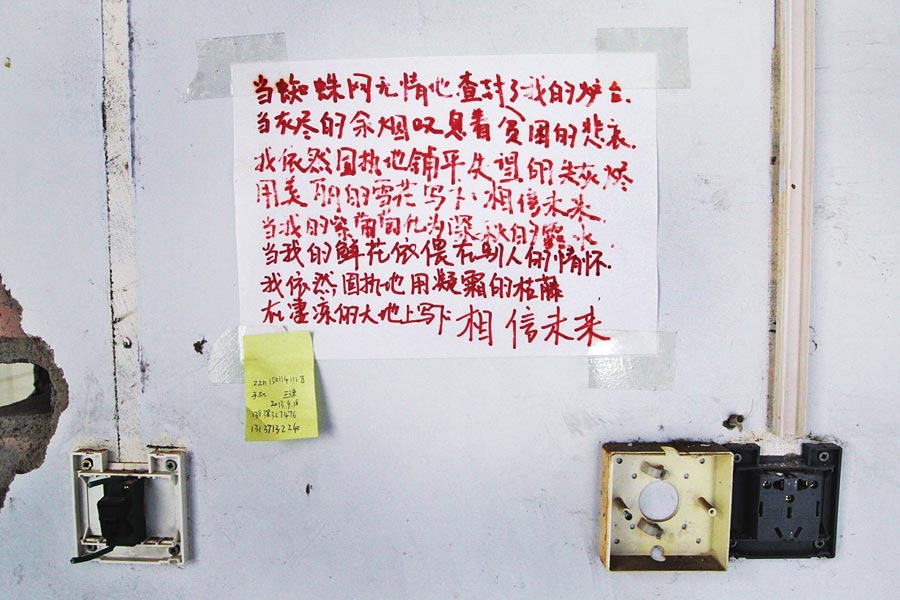 当蜘蛛网无情地查封了我的炉台.
当灰烬的余烟叹息着贫困的悲哀.
我依然固执地铺平失望的失灰烬
用美丽的雪花写下:相信未来.
当我的紫葡萄化为深秋的露水.
当我的鲜花依偎在别人的情怀.
我依然固执地用凝霜的枯藤
在凄凉的大地上写下 相信未来
手机
2013.9.18